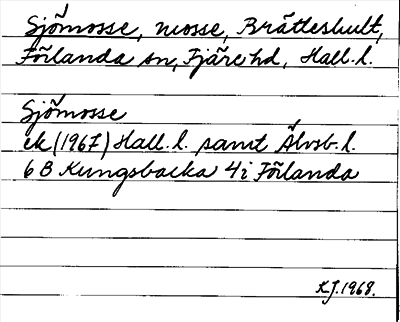 Sjömosse, mosse, Brättleshult,
Förlanda sn, Fjäre hd, Hall. l.
Sjömosse
ek (1967) Hall. l. samt Älvsb. l.
6 B Kungsbacka 4 i Förlanda
K.J. 1968.